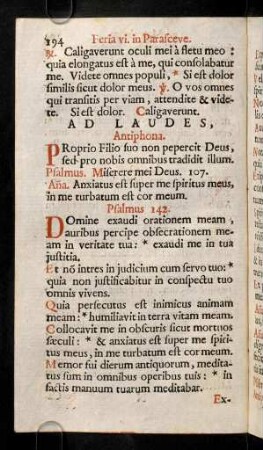 194 Feria vi. in Parasceve.
℟. Caligaverunt oculi mei à fletu meo :
quia elongatus est à me, qui consolabatur
me. Videte omnes populi, * Si est dolor
similis sicut dolor meus. ℣. O vos omnes
qui transitis per viam, attendite & vide-
te. Si est dolor. Caligaverunt.
AD LAUDES,
Antiphona.
PRoprio Filio suo non pepercit Deus,
sed pro nobis omnibus tradidit illum.
Psalmus. Miserere mei Deus. 107.
Aña. Anxiatus est super me spiritus meus,
in me turbatum est cor meum.
Psalmus 142.
DOmine exaudi orationem meam,
auribus percipe obsecrationem me-
am in veritate tua: * exaudi me in tua
justitia.
Et nō intres in judicium cum servo tuo: *
quia non justificabitur in conspectu tuo
omnis vivens.
Quia persecutus est inimicus animam
meam: * humiliavit in terra vitam meam.
Collocavit me in obscuris sicut mortuos
sæculi: * & anxiatus est super me spiri-
tus meus, in me turbatum est cor meum.
Memor fui dierum antiquorum, medita-
tus sum in omnibus operibus tuis: * in
factis manuum tuarum meditabar.
Ex-